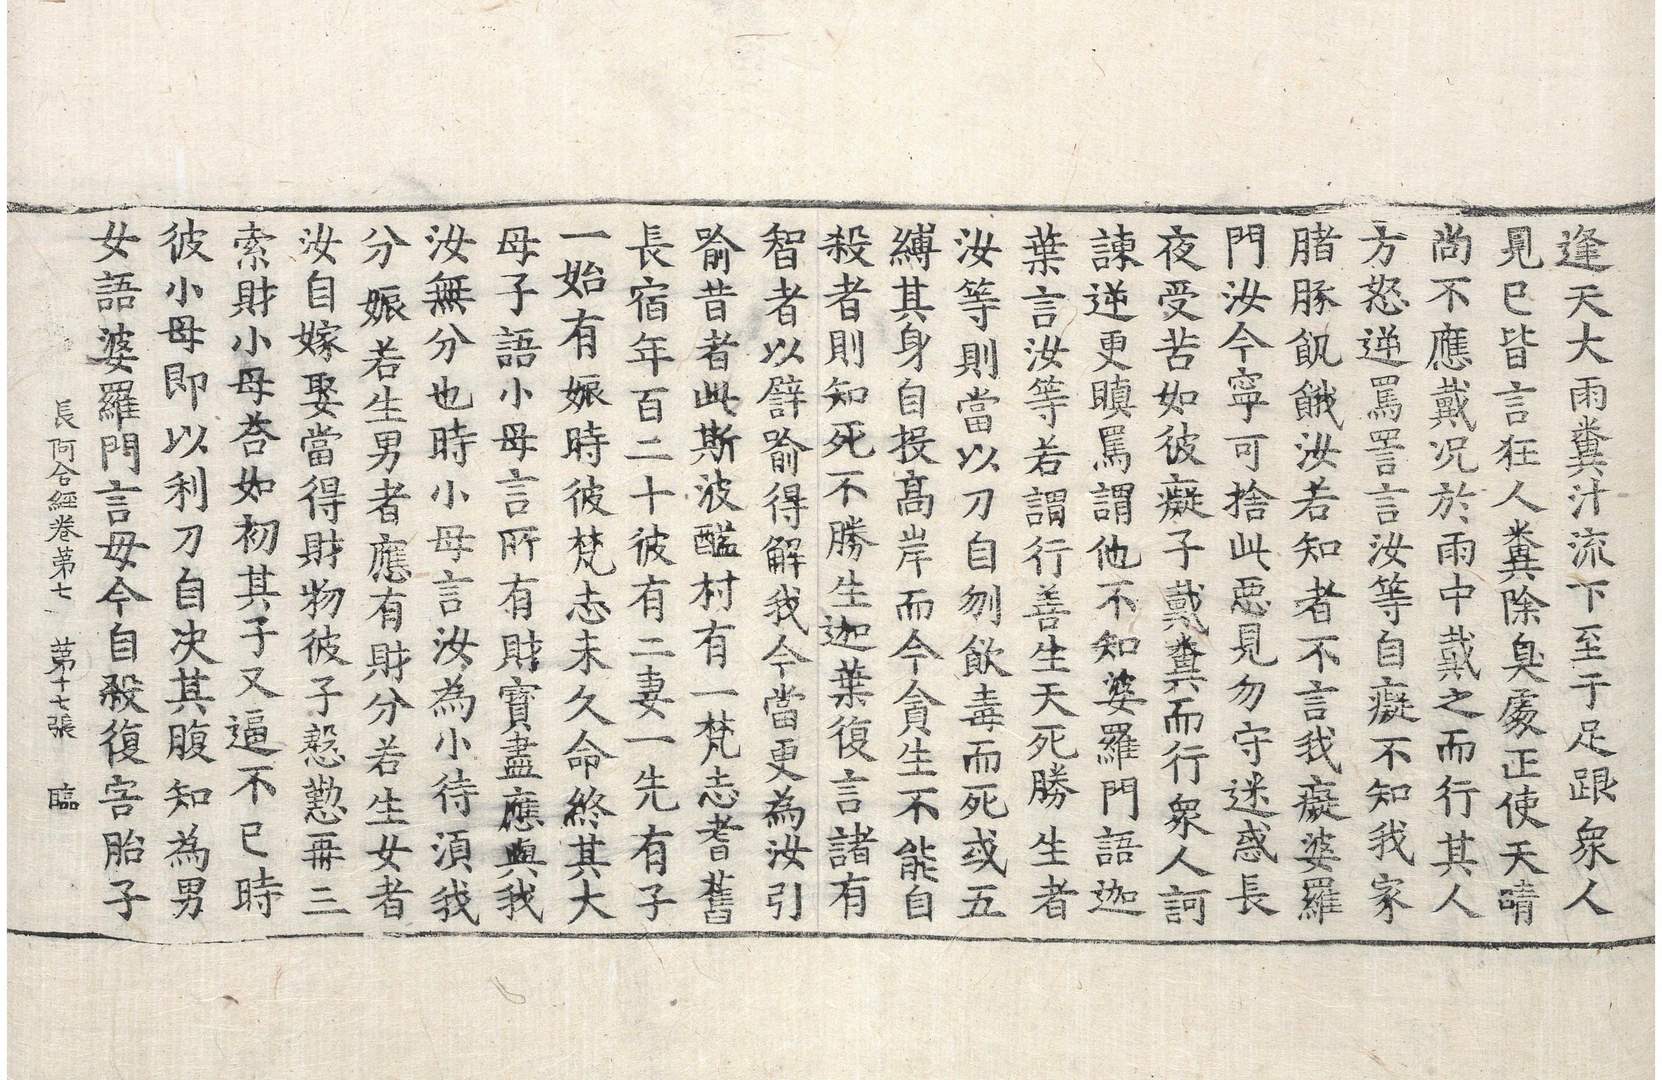 逢天大雨糞汁流下至于足跟衆人
見已皆言狂人糞除臭處正使天晴
尚不應戴況於雨中戴之而行其人
方怒逆罵詈言汝等自癡不知我家
豬豚飢餓汝若知者不言我癡婆羅
門汝今寧可捨此惡見勿守迷惑長
夜受苦如彼癡子戴糞而行衆人訶
諫逆更瞋罵謂他不知婆羅門語迦
葉言汝等若謂行善生天死勝生者
汝等則當以刀自刎飲毒而死或五
縛其身自投高岸而今貪生不能自
殺者則知死不勝生迦葉復言諸有
智者以譬喻得解我今當更為汝引
喻昔者此斯波醯村有一梵志耆舊
長宿年百二十彼有二妻一先有子
一始有娠時彼梵志未久命終其大
母子語小母言所有財寶盡應與我
汝無分也時小母言汝為小待須我
分娠若生男者應有財分若生女者
汝自嫁娶當得財物彼子慇懃再三
索財小母荅如初其子又逼不已時
彼小母即以利刀自决其腹知為男
女語婆羅門言母今自殺復害胎子
長阿含經卷第七 第十七張 臨